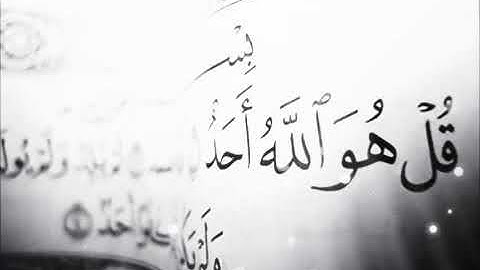 بِسْ
قُلْ هُوَ ٱللَّهُ أَحَدٌ وَلَمْ يُولَ
وَلَمْ أَحَدٌ